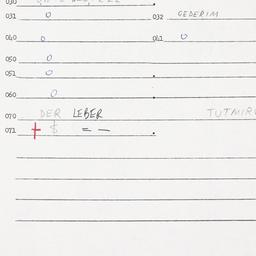 030
031 0 032 GEDERIM
040 0 041 0
050 0
051 0
060 0
070 DER LEBER
071 + $ = -